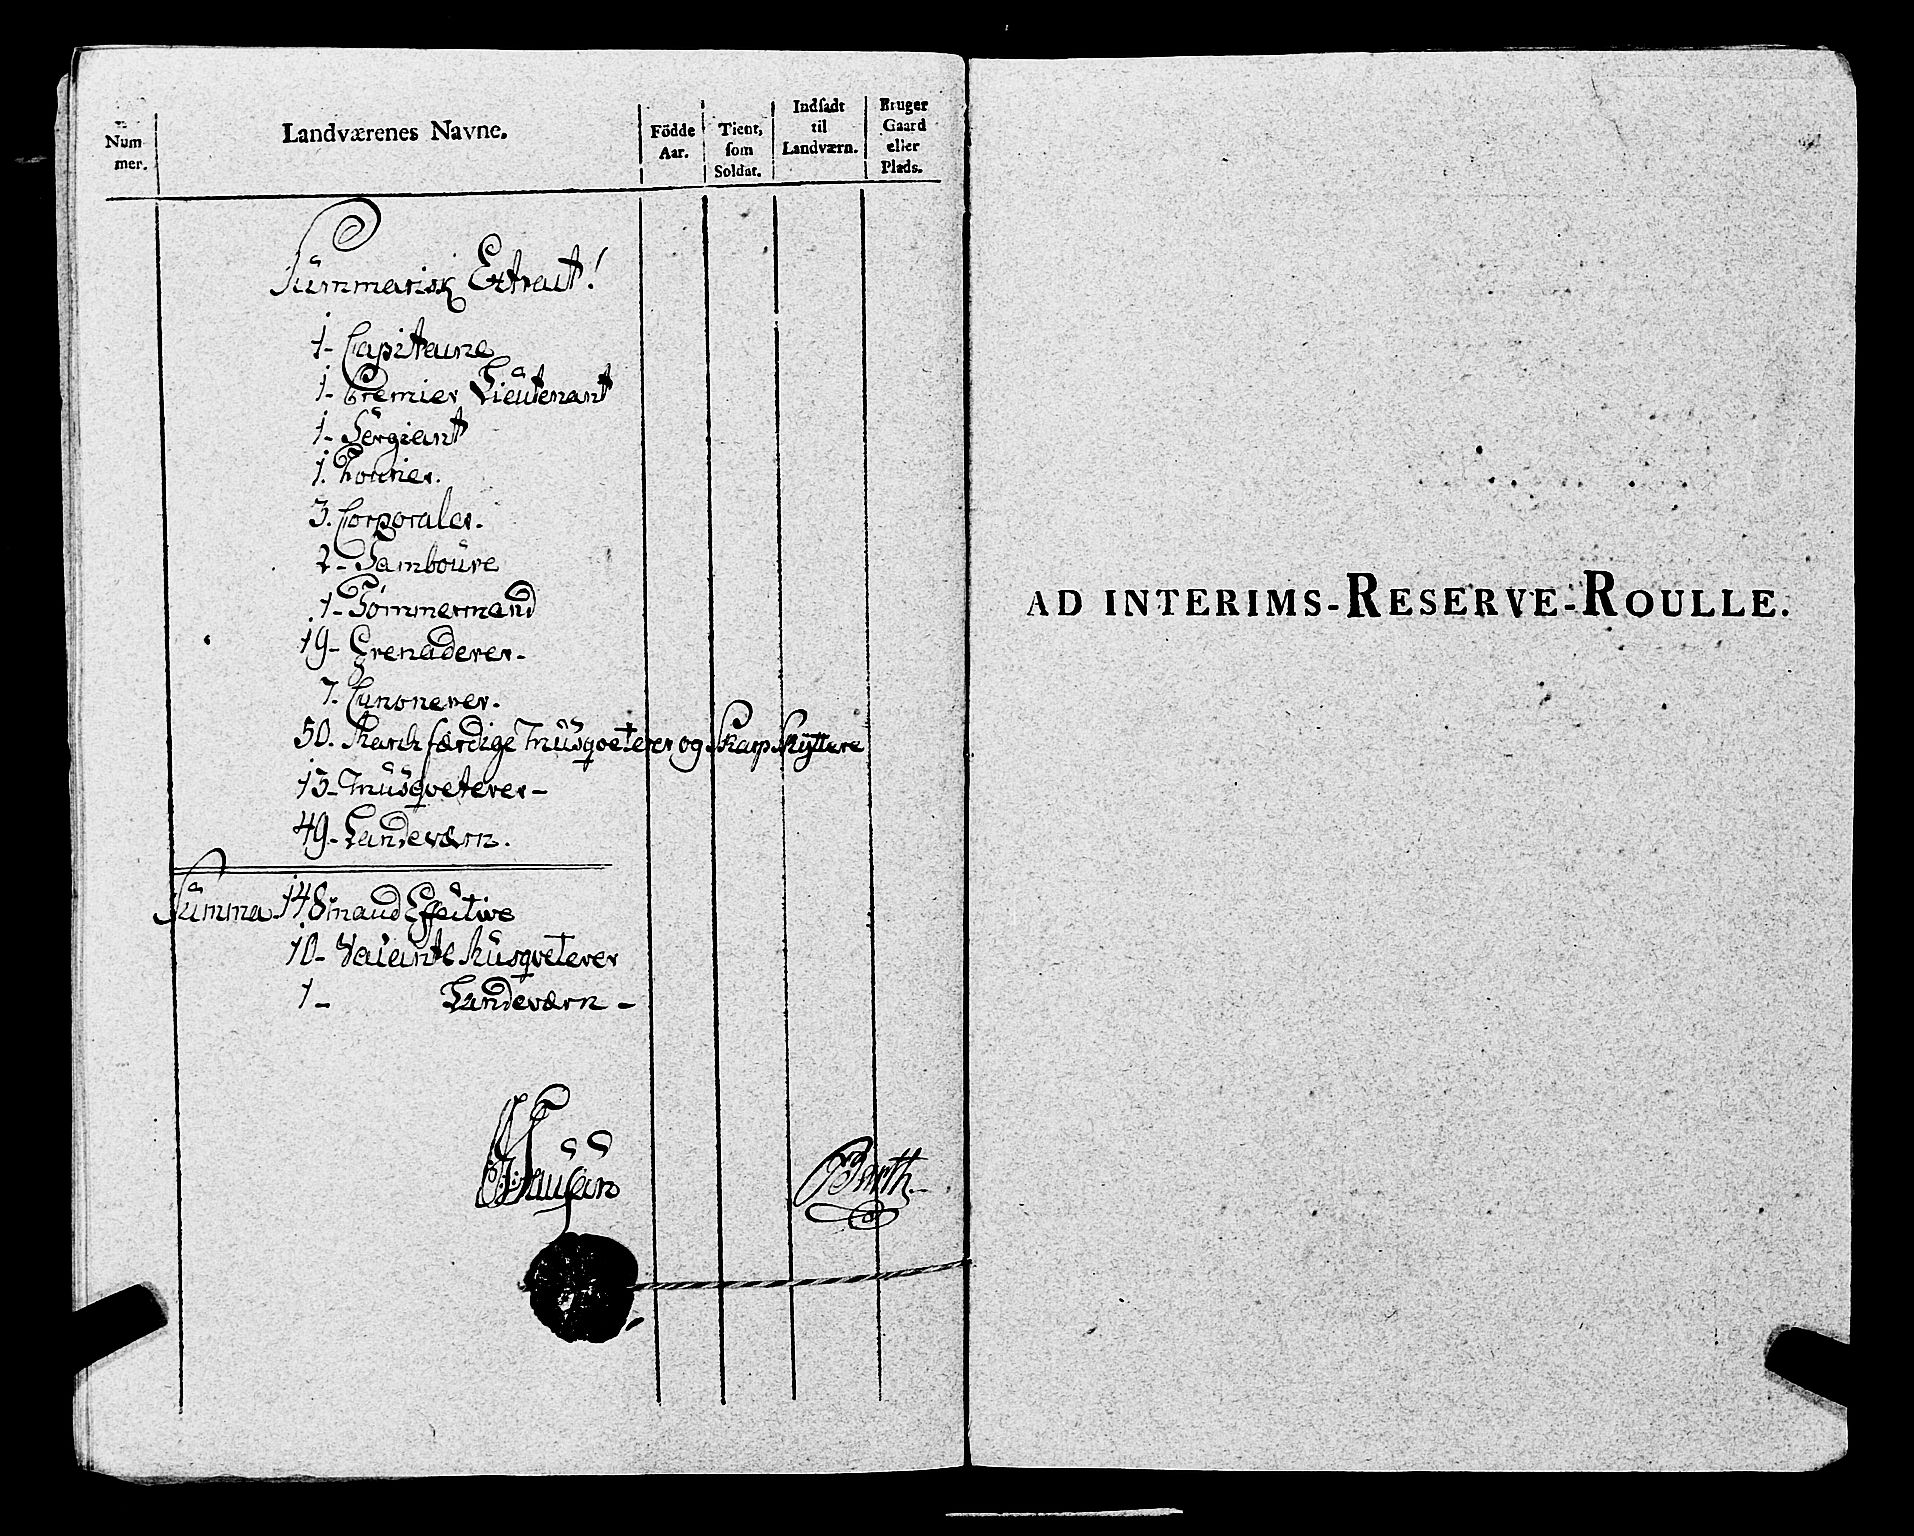 Nummer.
Landværenes Navne.
Födde Aar.
Tient, som Soldat.
Indsadt til Landværn.
Bruger Gaard eller Plads.
Summarisk Extract!
1- Capitaine
1- Premier Lieutenant
1- Sergiant
1. Fourier.
3. Corporaler.
2- Tamboure
1- Tömmermand
19- Grenaderer-
7. Canonerer.
50. March færdige Musqveterer og Skarp Skyttere
13- Musqveterer-
49- Landeværn.
Summa 148 mand Effective
10- Vacante Musqveterer
1- Landeværn-
Barth.
AD INTERIMS-RESERVE-ROULLE.